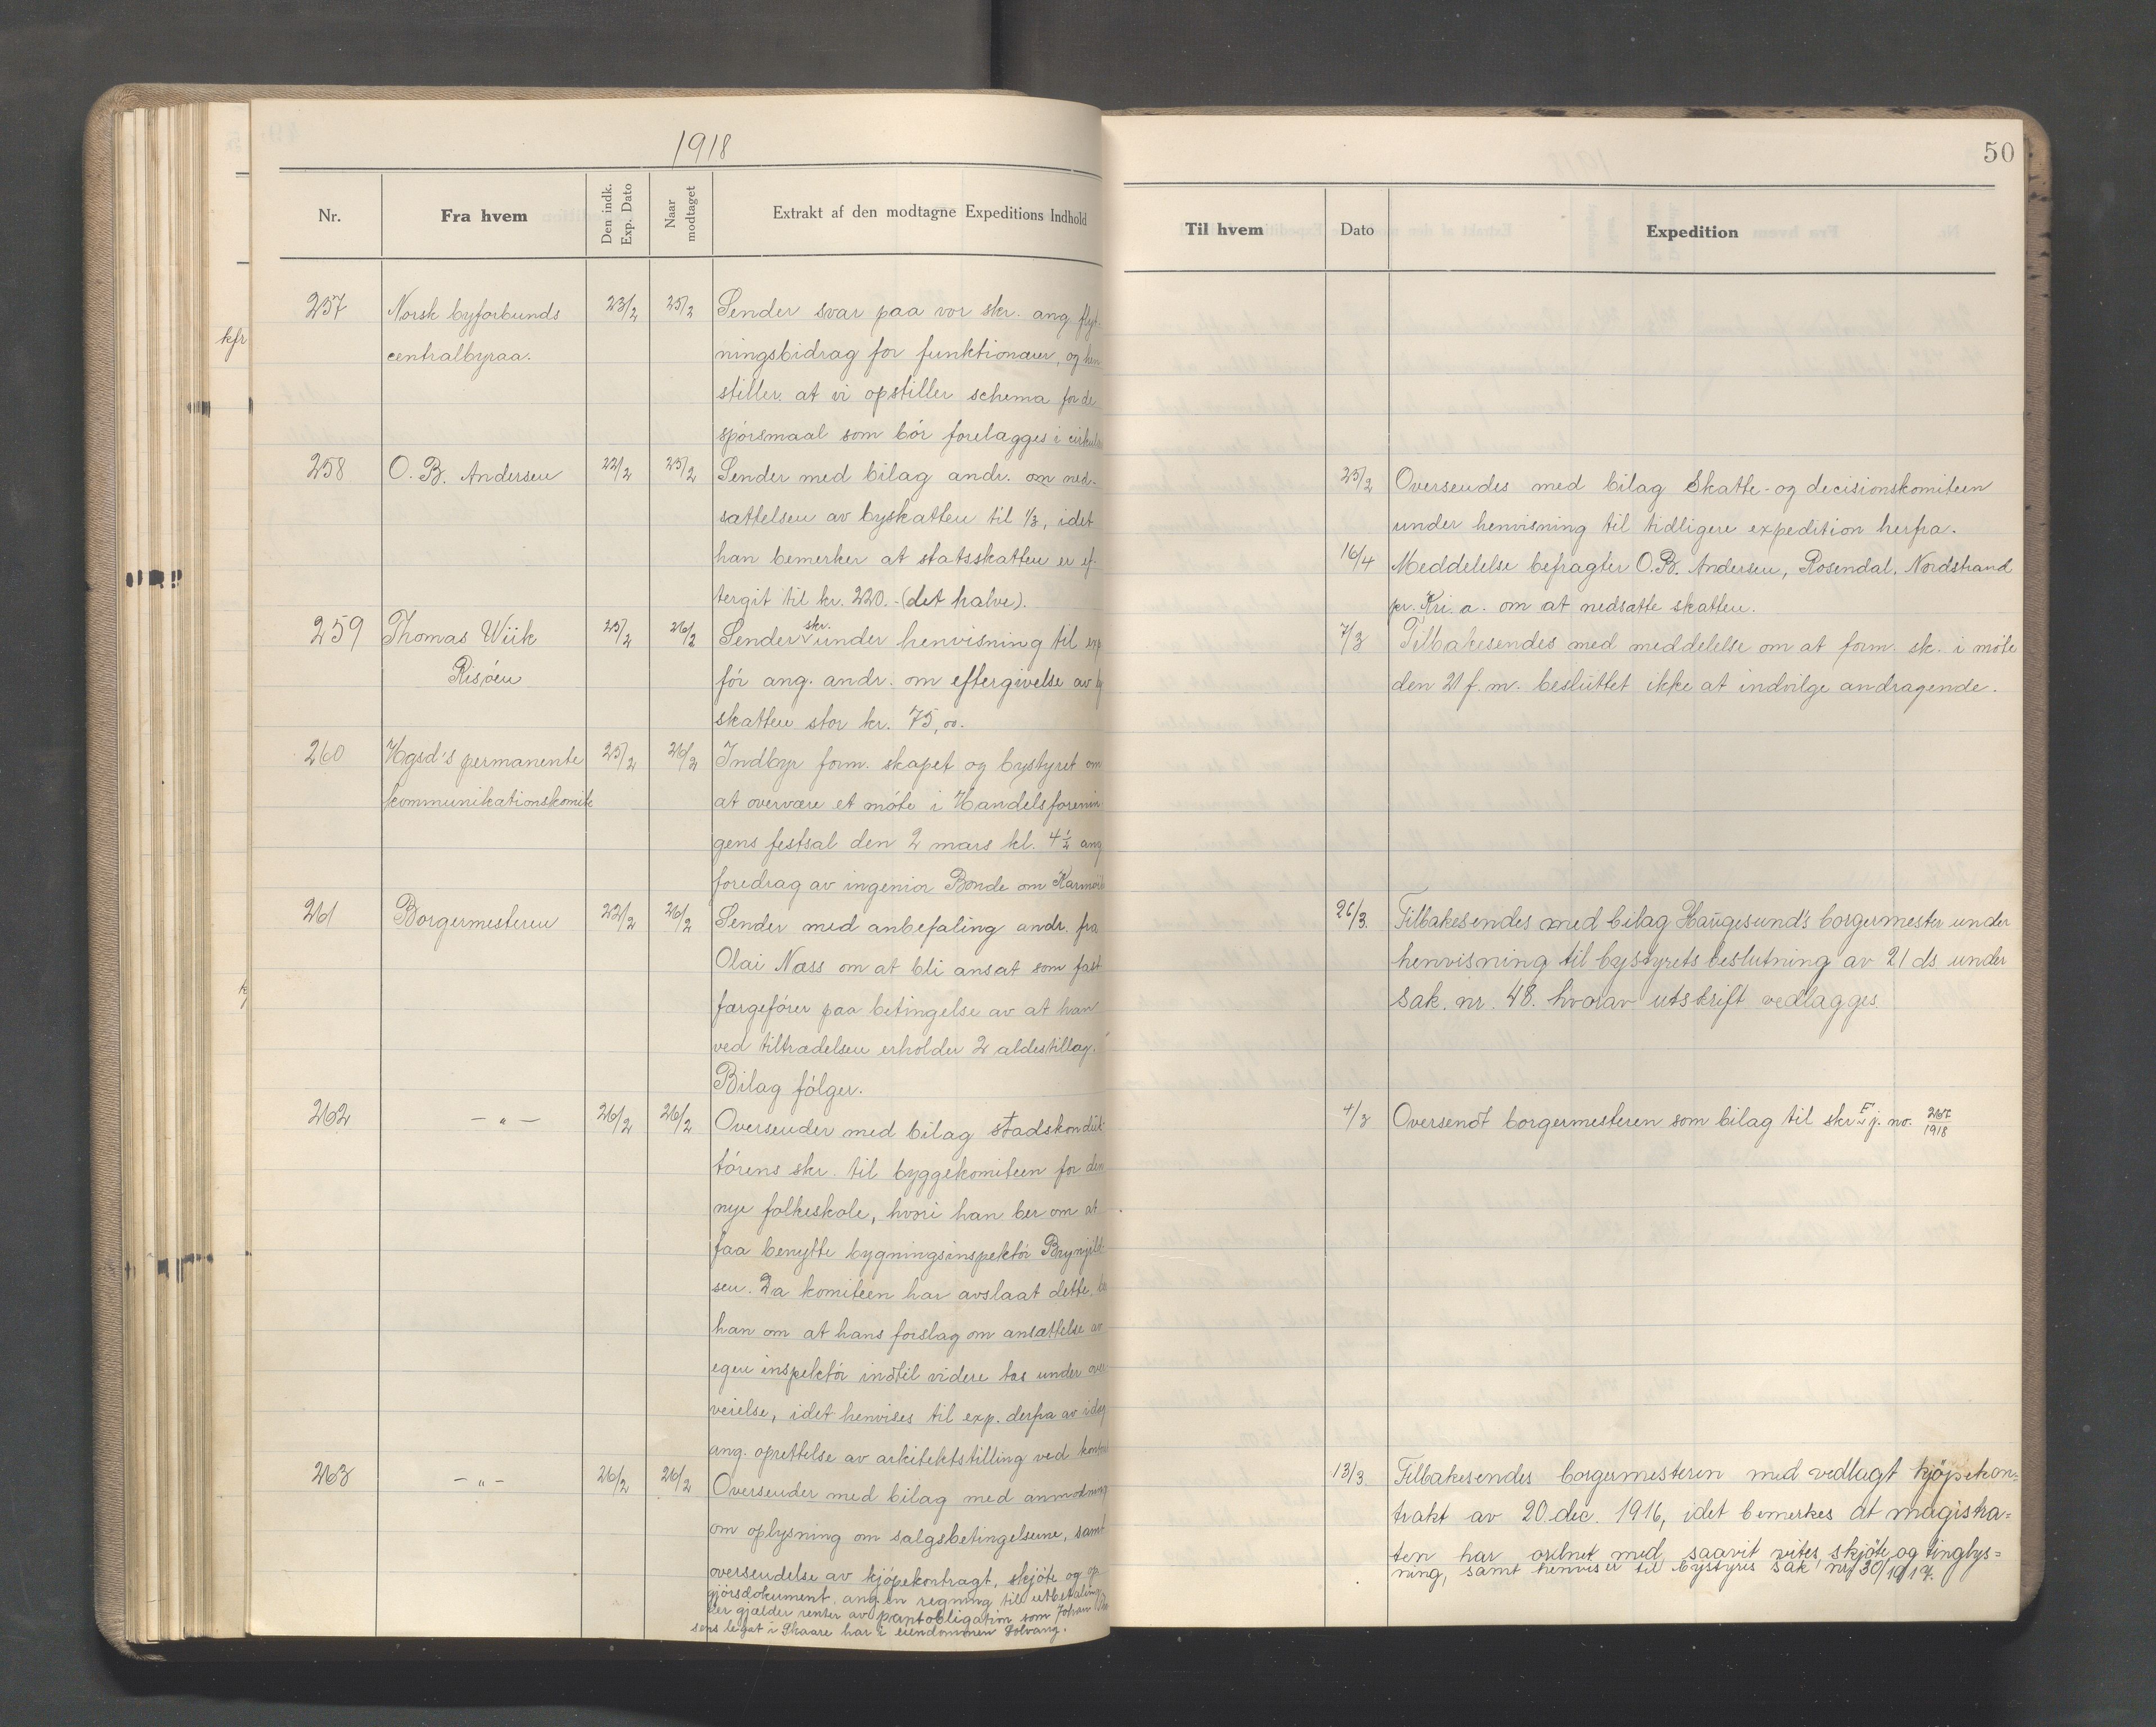 1918
Nr.
Fra hvem
Den indk. Exp. Dato
Naar modtaget
Extrakt af den modtagne Expeditions Indhold
kfr
257
Norsk byforbunds
centralbyraa.
23/2
25/2
Sender svar paa vor skr. ang. flyt-
ningsbidrag for funktionærer, og hen
stiller at vi opstiller schema for de
spörsmaal som bör forelægges i
258
O. B. Andersen
22/2
25/2
Sender med bilag andr. om ned-
sættelsen av byskatten til 1/3, idet
han bemerker at statsskatten er ef-
tergit til kr. 220.- (det halve).
259
Thomas Wiik
Risöen
25/2
26/2
Sender skr. under henvisning til exp
för ang. andr. om eftergivelse av
skatten stor kr. 75,00.
260
Hgsd's permanente
kommunikationskomite
25/2
26/2
Indbyr form. skapet og bystyret om
at overvære et möte i Handelsforenin
gens festsal den 2 mars kl. 4 1/2 ang
foredrag av ingeniör Bonde om
261
Borgermesteren
22/2
26/2
Sender med anbefaling andr. fra
Olai Næss om at bli ansat som fast
færgeförer paa betingelse av at han
ved tiltrædelsen erholder 2 aldestillæg.
Bilag fölger.
262
- " -
26/2
26/2
Oversender med bilag stadskonduk-
törens skr. til byggekomiteen for den
nye folkeskole, hvori han ber om at
faa benytte bygningsinspektör Brynjild-
sen. Da komiteen har avslaat dette,
han om at hans forslag om ansættelse av
egen inspektör indtil videre tas under over
veielse, idet henvises til exp. derfra av idag
ang. oprettelse av arkitektstilling ved
263
- " -
26/2
26/2
Oversender med bilag med anmodning
om oplysning om salgsbetingelserne, samt
oversendelse av kjöpekontragt, skjöte og op
gjörsdokument, ang. en regning til utbetaling
der gjælder renter av pantobligation som Johan
sens legat i Skaare har i eiendommen Solvang.
50
Til hvem
Dato
Expedition
25/2
Oversendes med bilag Skatte- og decisionskomiteen
under henvisning til tidligere expedition herfra.
16/4
Meddelelse befragter O.B. Andersen, Rosendal, Nordstrand
pr. Kri.a. om at nedsætte skatten.
7/3
Tilbakesendes med meddelelse om at form. sk. i möte
den 21 f.m. besluttet ikke at indvilge andragende.
26/3.
Tilbakesendes med bilag Haugesund's borgermester under
henvisning til bystyrets beslutning av 21 ds. under
sak. nr. 48. hvorav utskrift vedlægges.
4/3
Oversendt borgermesteren som bilag til skr. F j. no. 267/1918
13/3.
Tilbakesendes borgermesteren med vedlagt kjöpekon=
trakt av 20. dec. 1916, idet bemerkes at magistra=
ten har ordnet med, saavit vites, skjöte og tinglys=
ning, samt henviser til bystyris sak nr. 30/1917.